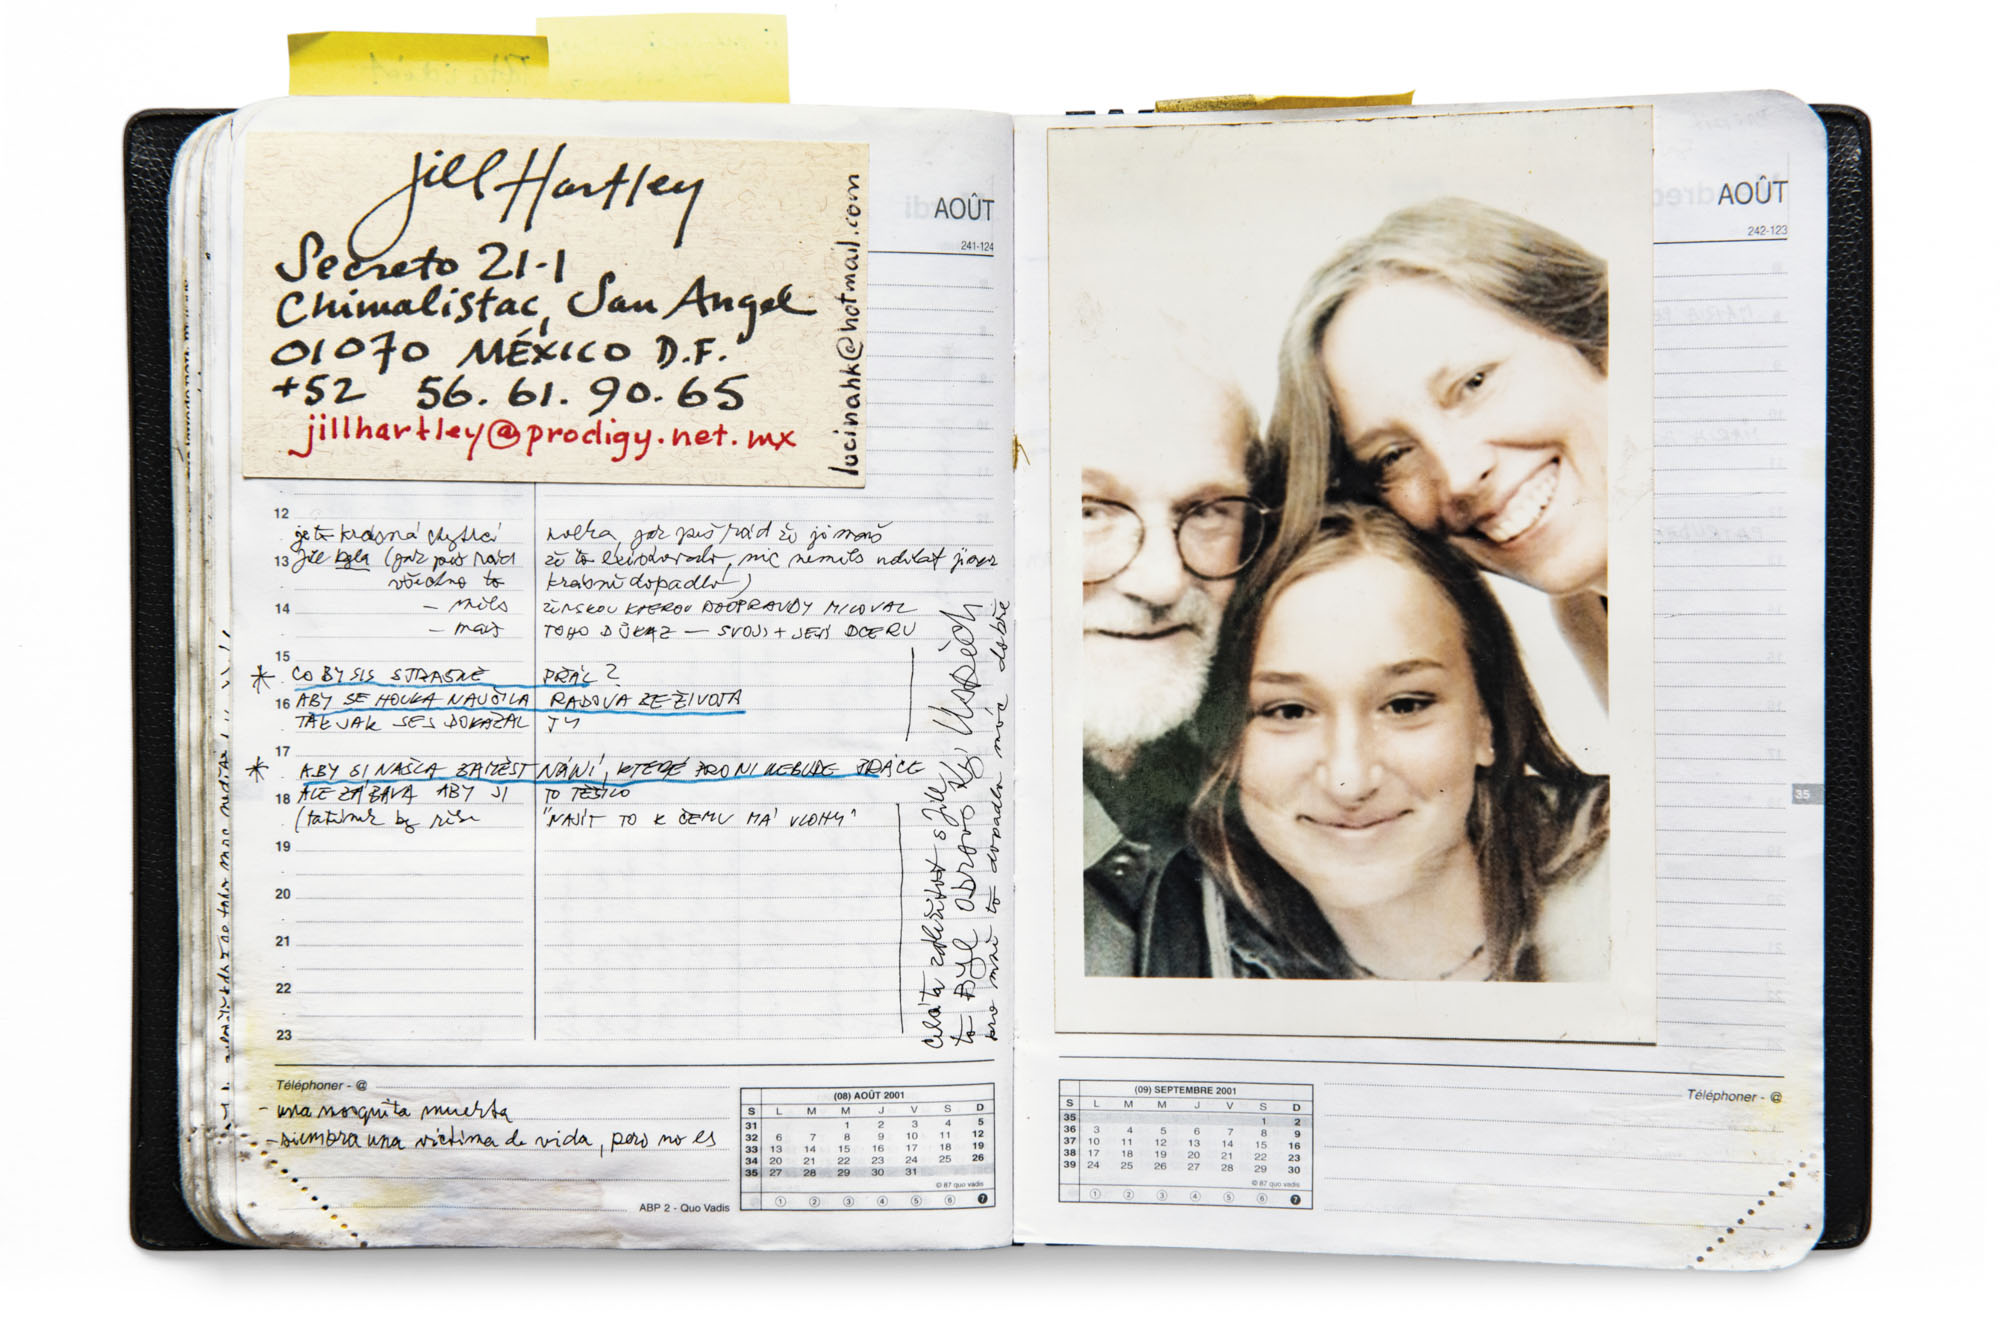 Jill Hartley
Secreto 21-1
Chimalistac, San Angel
01070 MÉXICO D.F.
+52 56.61.90.65
jillhartley@prodigy.net.mx
lucinahk@hotmail.com
AOÛT
241-124
12
je to krásná
holka, jak jsi rád že ji máš
13
všechno to
krásně dopadlo)
14
ŽENSKOU KTEROU DOOPRAVDY MILOVAL
TOHO DŮKAZ — SVOJI + JEJÍ DCERU
15
* CO BY SIS STRAŠNĚ PŘÁL?
16
ABY SE HOLKA NAUČILA RADOVAT ZE ŽIVOTA
TAK JAK SES DOKÁZAL TY
17
* ABY SI NAŠLA ZAMĚSTNÁNÍ, KTERÉ PRO NI NEBUDE PRÁCE
18
ALE ZÁBAVA ABY JI TO TĚŠILO
"NAJÍT TO K ČEMU MÁ VLOHY"
19
20
21
22
23
Celá ta záležitost s Jill
to Byl Obrovský Úspěch
pro mně to dopadlo moc dobře
Téléphoner - @
- una mosquita muerta
- siempre una víctima de vida, pero no es
ABP 2 - Quo Vadis
(08) AOÛT 2001
S L M M J V S D
31 1 2 3 4 5
32 6 7 8 9 10 11 12
33 13 14 15 16 17 18 19
34 20 21 22 23 24 25 26
35 27 28 29 30 31
© 87 quo vadis
1 2 3 4 5 6 7
AOÛT
242-123
35
(09) SEPTEMBRE 2001
S L M M J V S D
35 1 2
36 3 4 5 6 7 8 9
37 10 11 12 13 14 15 16
38 17 18 19 20 21 22 23
39 24 25 26 27 28 29 30
© 87 quo vadis
1 2 3 4 5 6 7
Téléphoner - @